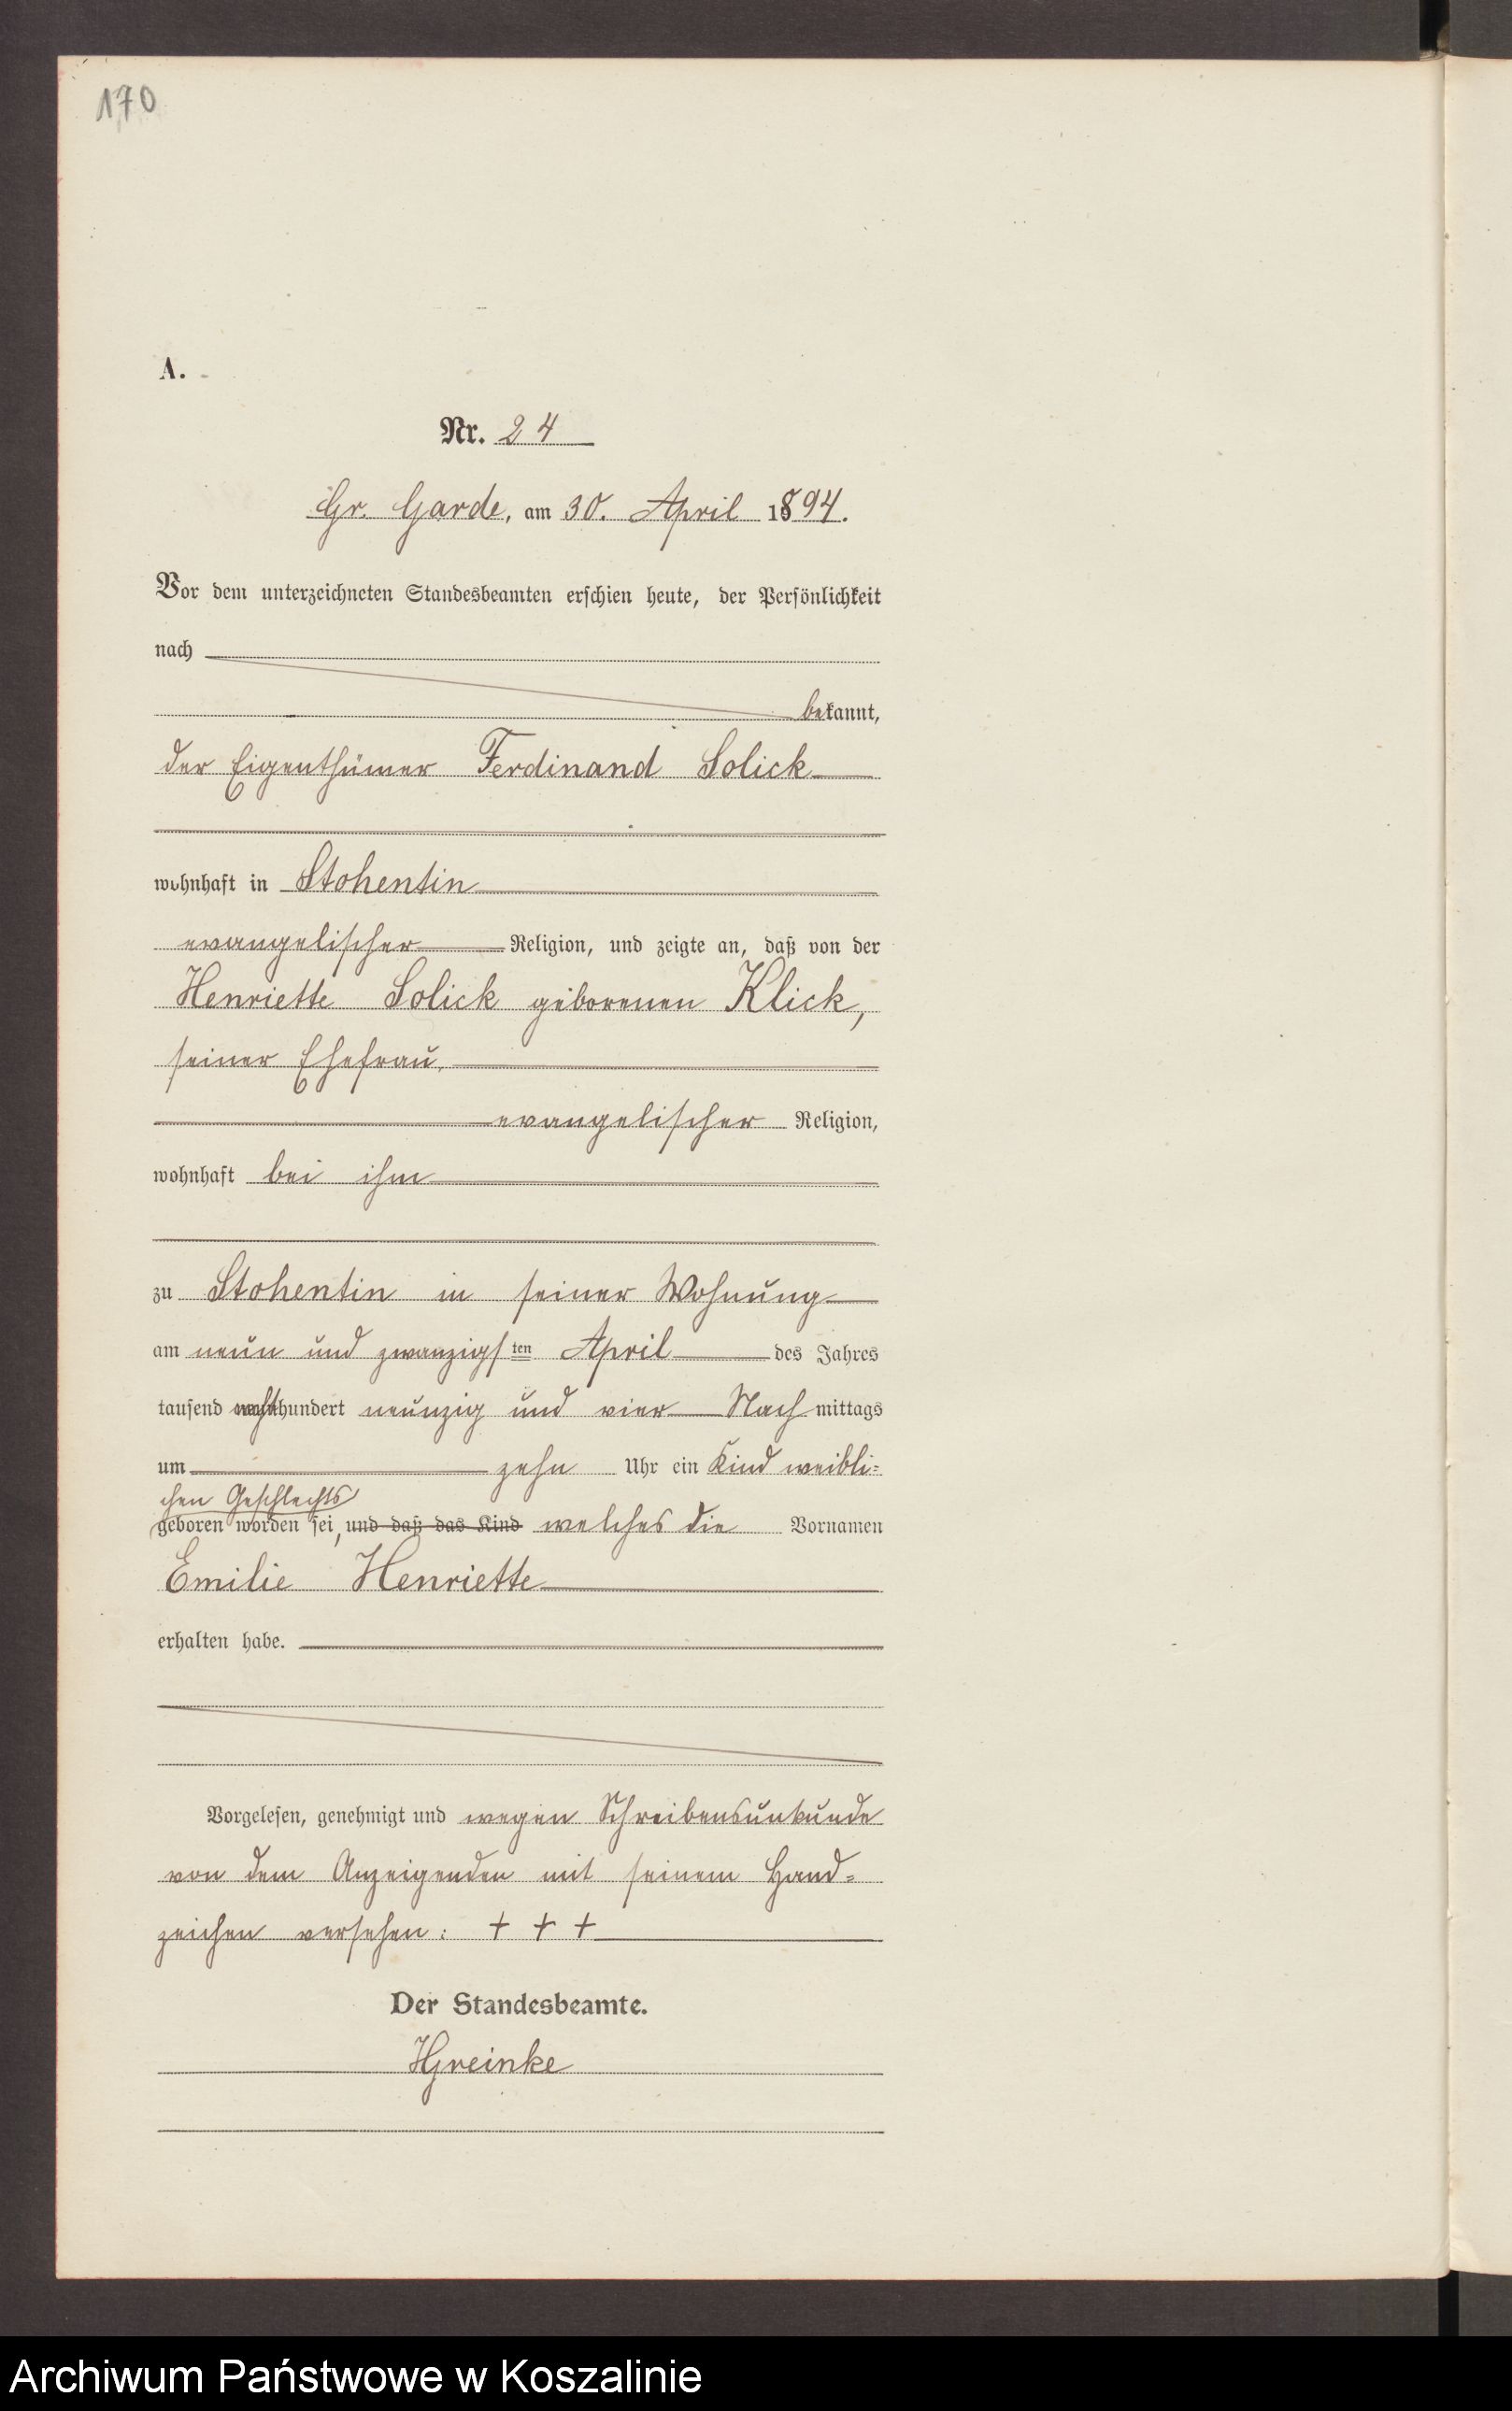 170
A.
Nr. 24
Gr. Garde, am 30. April 1894.
Vor dem unterzeichneten Standesbeamten erschien heute, der Persönlichkeit
nach
bekannt,
der Eigenthümer Ferdinand Solick
wohnhaft in Stohentin
evangelischer Religion, und zeigte an, daß von der
Henriette Solick geborenen Klick,
seiner Ehefrau,
evangelischer Religion,
wohnhaft bei ihm
zu Stohentin in seiner Wohnung
am neun und zwanzigsten April des Jahres
tausend achthundert neunzig und vier Nachmittags
um zehn Uhr ein Kind weibli=
chen Geschlechts
geboren worden sei, und daß das Kind welches die Vornamen
Emilie Henriette
erhalten habe.
Vorgelesen, genehmigt und wegen Schreibensunkunde
von dem Anzeigenden mit seinem Hand=
zeichen versehen: + + +
Der Standesbeamte.
HGreinke
Archiwum Państwowe w Koszalinie